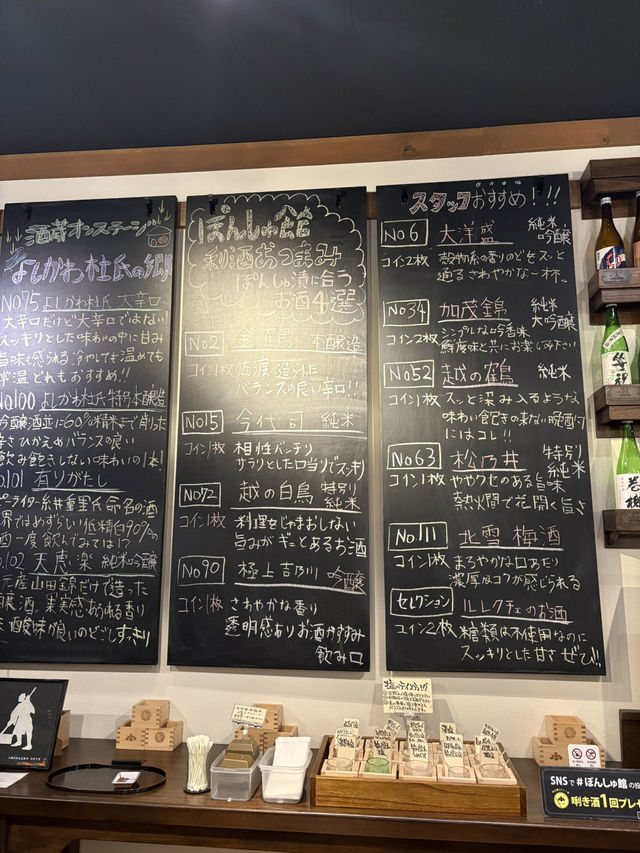 酒蔵オンステージ
よしかわ杜氏の郷
No75 よしかわ杜氏 大辛口
大辛口だけど大辛口ではない
スッキリとした味わいの中に甘み
旨味も感じる 冷やしても温めても
常温 どれもおすすめ!!
No100 よしかわ杜氏 特別本醸造
吟醸酒並に60%精米まで削った
辛さひかえめバランスの良い
飲み飽きしない味わいの1本!
o.101 有りがたし
ピーライター糸井重里氏命名の酒
界ではめずらしい低精白90%の
酒 一度飲んでみては!?
o.102 天恵楽 純米吟醸
産山田錦だけで造った
醸酒 果実感あふれる香り
酸味が良いのどごしすっきり
ぽんしゅ館
利酒おつまみ
ぽんしゅ漬に合う
お酒4選
No2 金鶴 本醸造
コイン1枚 佐渡で造られた
バランスの良い辛口!!
No15 今代司 純米
コイン1枚 相性バッチリ
サラリとした口当りでスッキリ
No72 越の白鳥 特別純米
コイン1枚 料理をじゃましない
旨みがギュッとあるお酒
No90 極上吉乃川 吟醸
コイン1枚 さわやかな香り
透明感あり お酒がすすみ
飲み口
スタッフおすすめ!!!
No6 大洋盛 純米吟醸
コイン2枚 穀物系の香りのどをスッと
通る さわやかな一杯。
No34 加茂錦 純米大吟醸
コイン2枚 シンプルな吟香味
鮮度味と共にお楽しみ下さい
No52 越の鶴 純米
コイン1枚 スッと染み入るような
味わい 飽きの来ない晩酌
にはコレ!!
No63 松乃井 特別純米
コイン1枚 ややクセのある旨味
熱火間で花開く旨さ
No111 北雪 梅酒
コイン1枚 まろやかな口あたり
濃厚なコクが感じられる
セレクション ルレクチェのお酒
コイン2枚 糖類は不使用なのに
スッキリとした甘さ ぜひ!!
SNSで#ぽんしゅ館の
唎き酒1回プレ